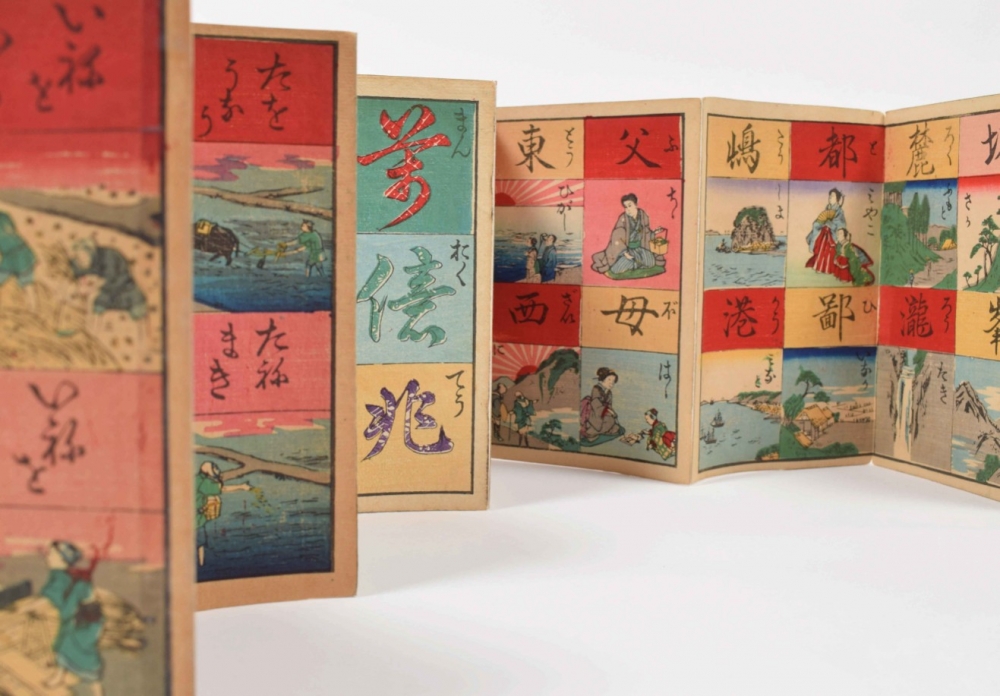 いねを
いねを
たを
うなう
たね
まき
萬 まん
億 おく
兆 てう
父 ふ
ちゝ
母 ぼ
はゝ
東 とう
ひがし
西 さい
都 と
みやこ
鄙 ひ
いなか
嶋 とう
しま
港 かう
みなと
麓 ろく
ふもと
瀧 ろう
たき